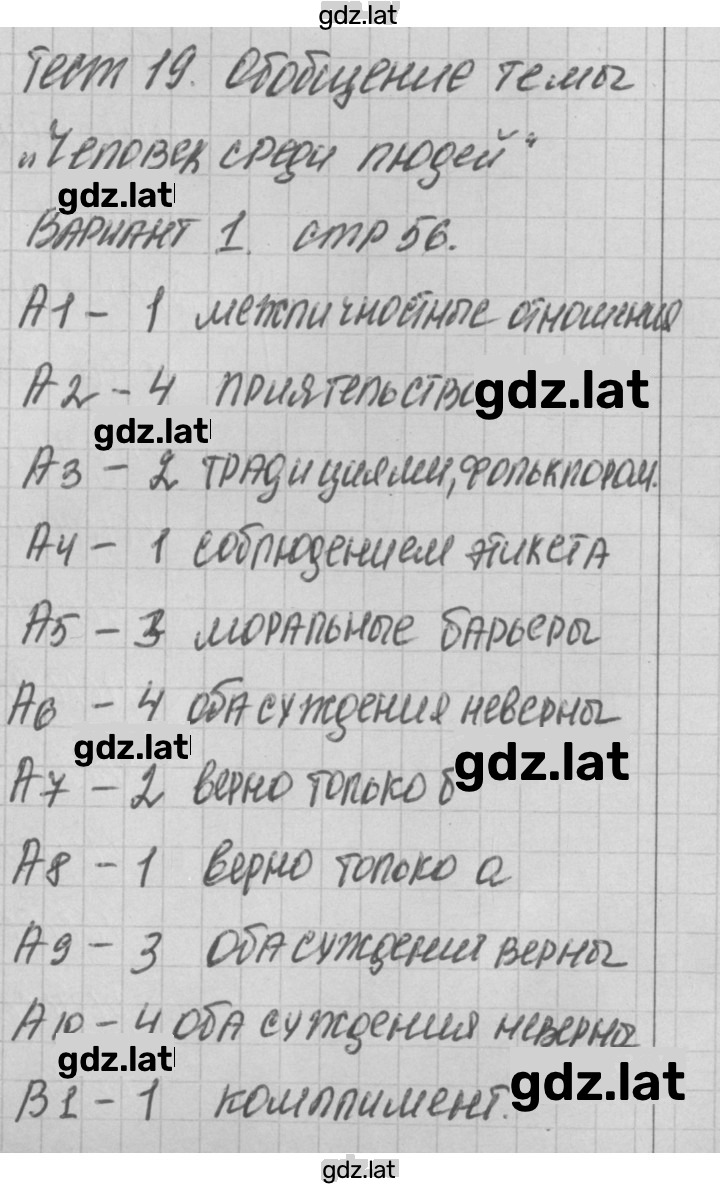 gdz.lat
Тест 19. Обобщение темы
„Человек среди людей"
gdz.lat
Вариант 1. стр 56.
А1 - 1 межличностные отношения
А2 - 4 приятельство
gdz.lat
gdz.lat
А3 - 2 традициями, фольклором.
А4 - 1 соблюдением этикета
А5 - 3 моральные барьеры
А6 - 4 оба суждения неверны
gdz.lat
gdz.lat
А7 - 2 верно только б
А8 - 1 верно только а
А9 - 3 оба суждения верны
А10 - 4 оба суждения неверны
gdz.lat
gdz.lat
В1 - 1 комплимент.
gdz.lat